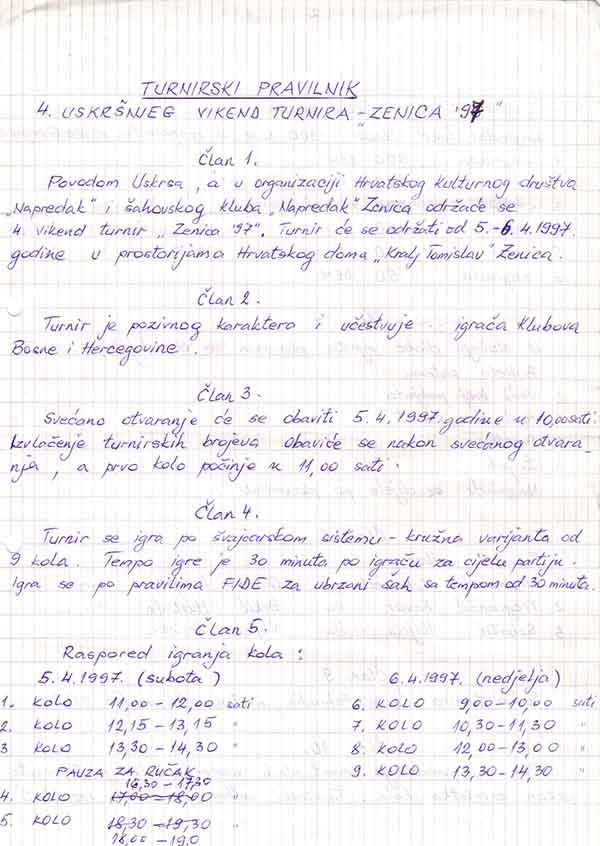 TURNIRSKI PRAVILNIK
4. USKRŠNJEG VIKEND TURNIRA - "ZENICA '97"
Član 1.
Povodom Uskrsa, a u organizaciji Hrvatskog kulturnog društva
„Napredak" i šahovskog kluba „Napredak" Zenica održaće se
4. vikend turnir „Zenica '97". Turnir će se održati od 5.-6.4.1997.
godine u prostorijama Hrvatskog doma „Kralj Tomislav" Zenica.
Član 2.
Turnir je pozivnog karaktera i učestvuje igrača klubova
Bosne i Hercegovine.
Član 3.
Svečano otvaranje će se obaviti 5.4.1997. godine u 10,00 sati.
Izvlačenje turnirskih brojeva obaviće se nakon svečanog otvara-
nja, a prvo kolo počinje u 11,00 sati.
Član 4.
Turnir se igra po švajcarskom sistemu - kružna varijanta od
9 kola. Tempo igre je 30 minuta po igraču za cijelu partiju.
Igra se po pravilima FIDE za ubrzani šah sa tempom od 30 minuta.
Član 5.
Raspored igranja kola:
5.4.1997. (subota)
1. KOLO 11,00 - 12,00 sati
2. KOLO 12,15 - 13,15 "
3 KOLO 13,30 - 14,30 "
PAUZA ZA RUČAK
16,30 - 17,30
4. KOLO 17,00 - 18,00 "
5. KOLO 18,30 - 19,30 "
18,00 - 19,0
6.4.1997. (nedjelja)
6. KOLO 9,00 - 10,00 sati
7. KOLO 10,30 - 11,30 "
8. KOLO 12,00 - 13,00 "
9. KOLO 13,30 - 14,30 "